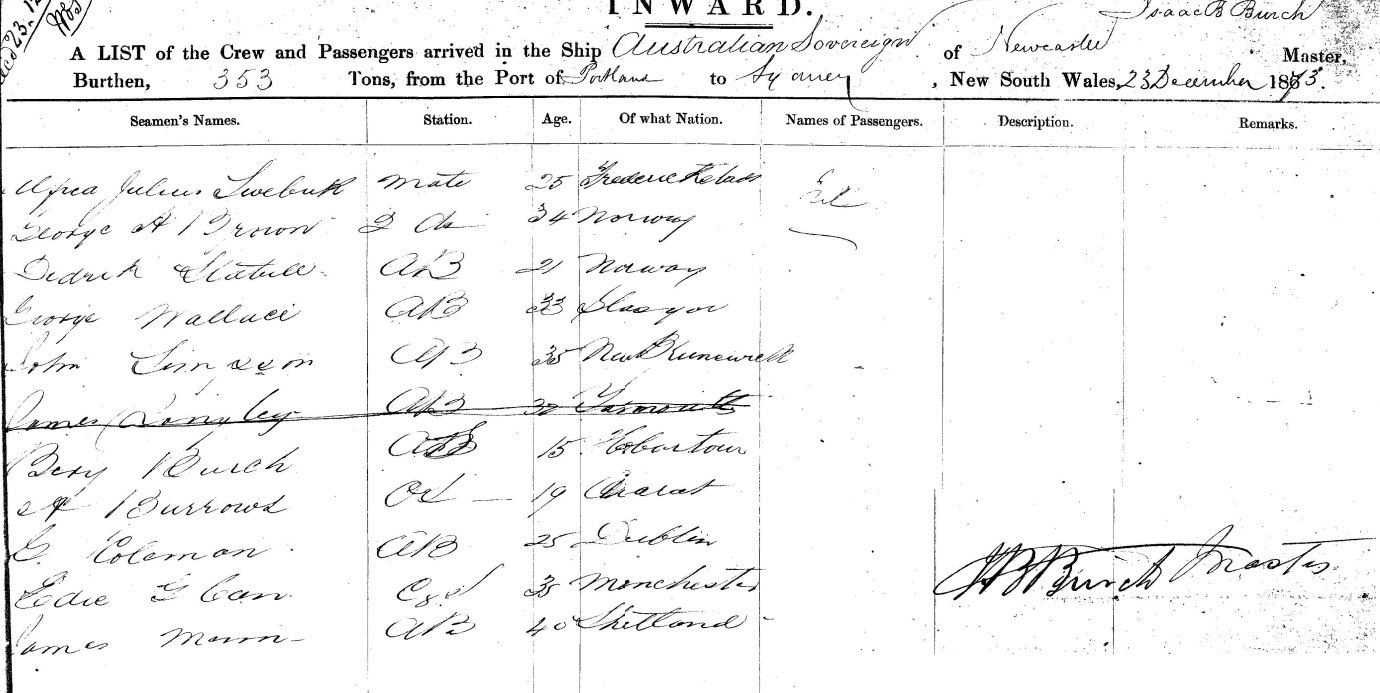 INWARD.
Isaac B Burch
A LIST of the Crew and Passengers arrived in the Ship Australian Sovereign of Newcastle Master,
Burthen, 353 Tons, from the Port of Portland to Sydney, New South Wales, 23 December 1873.
Seamen's Names. Station. Age. Of what Nation. Names of Passengers. Description. Remarks.
Alfred Julius Mate 25
George A Brown 2 34 Norway Nil
AB 21 Norway
George Wallace AB 33 Glasgow
John Simpson AB 35 New Brunswick
James Langley AB 30 Yarmouth
Burch 15 Hobartown
A Burrows OS 19 Ararat
G. Coleman AB 25 Dublin
35 Manchester
James AB 40 Shetland
I B Burch Master